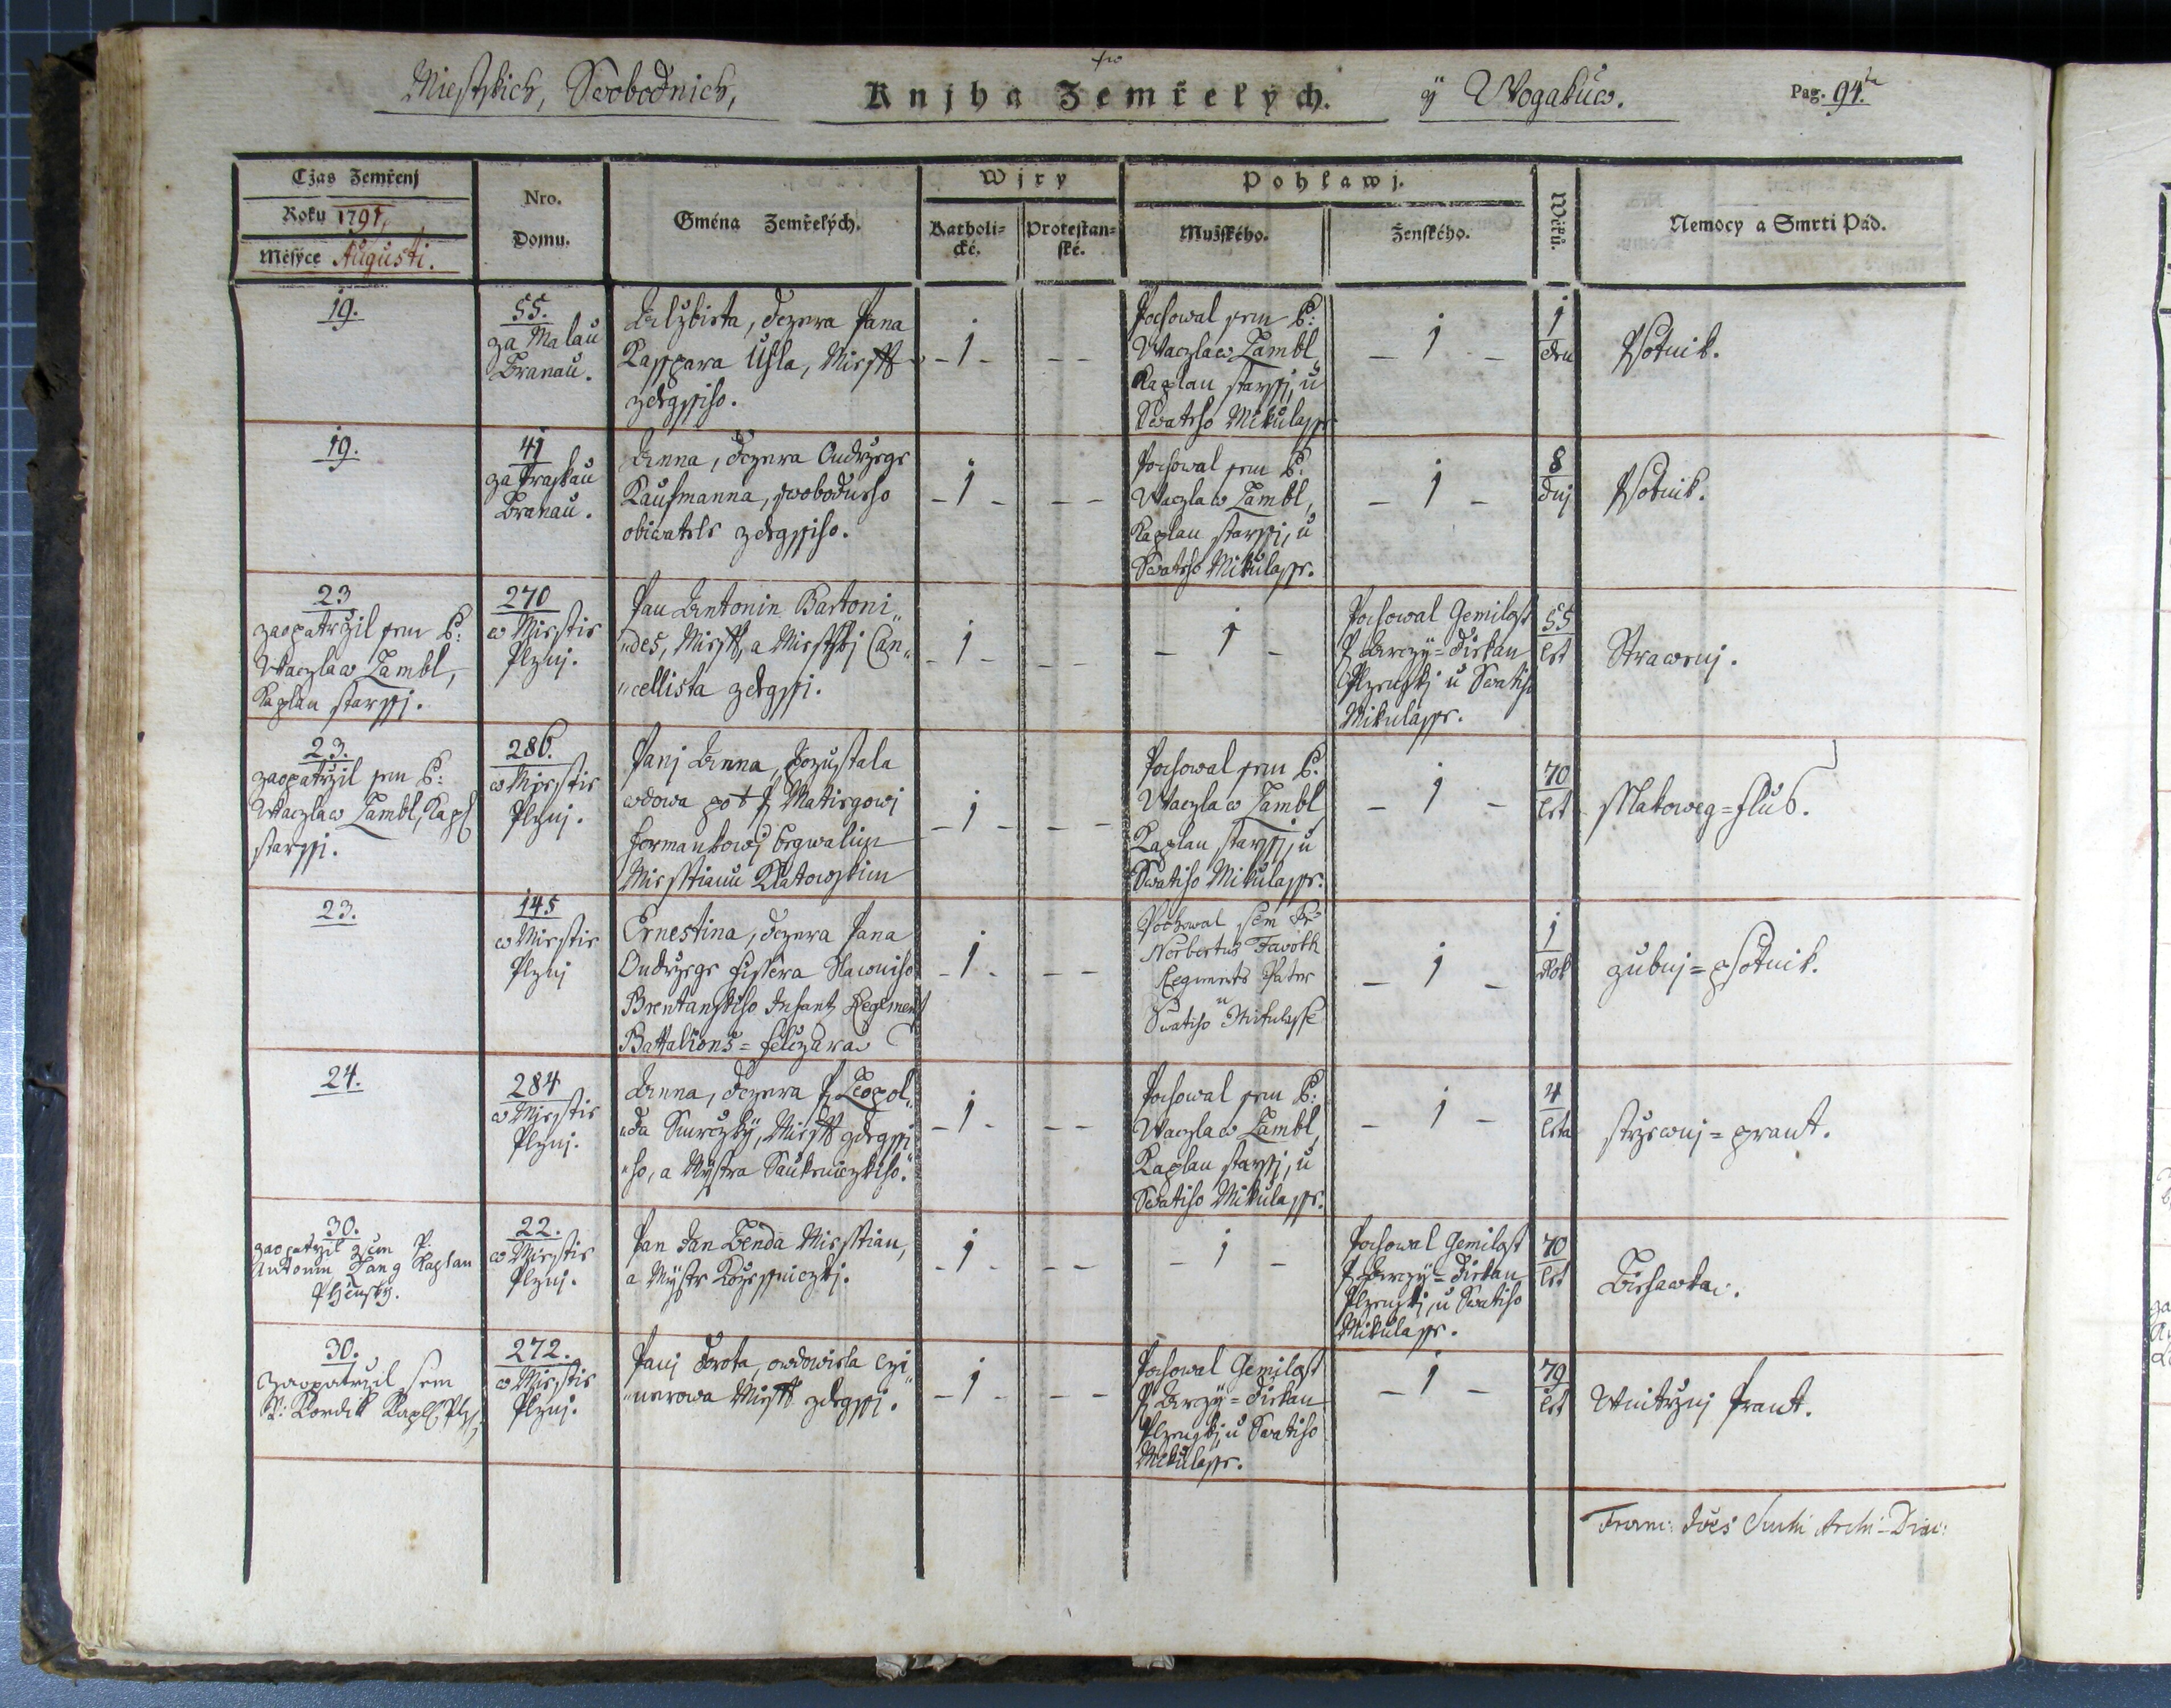 Miestskich, Swobodnich,
Knjha Zemřelých.
ÿ Wogakuw.
Pag. 94.ta
Cžas Zemřenj
Roku 1791,
Měsýce Augusti.
Nro.
Domu.
Gména Zemřelých.
Wjry
Katholi=
cké.
Protestan=
ské.
Pohlawj.
Mužského.
Ženského.
Wěků.
Nemocy a Smrti Pád.
19.
55.
za Malau
Branau.
Alzbieta, dczera Pana
Kasspara Uhla, Miesstt
zdegssiho.
- 1 -
- -
Pochowal sem P:
Waczlaw Zambl,
Kaplan starssj, u
Swateho Mikulasse
- 1 -
1
den
Psotnik.
19.
41
za Prazkau
Branau.
Anna, dczera Ondrzege
Kaufmanna, swobodneho
obiwatele zdegssiho.
- 1 -
- -
Pochowal sem P:
Waczlaw Zambl,
Kaplan starssj, u
Swateho Mikulasse.
- 1 -
8
dnj
Psotnik.
23
zaopatržil sem P:
Waczlaw Zambl,
Kaplan starssj.
270
w Miestie
Plznj.
Pan Antonin Bartoni„
„des, Miesstt, a Miestskj Can„
„cellista zdegssi.
- 1 -
- -
- 1 -
Pochowal Gemilost
P. Arczÿ=Diekan
Plzenskj u Swatiho
Mikulasse.
55
let
Strawenj.
23.
zaopatržil sem P:
Waczlaw Zambl, Kapl
starssj.
286.
w Miestie
Plznj.
Panj Anna, pozustala
wdowa po † P. Matiegowj
Formankowj begwalim
Miesstianu Klatowskim
- 1 -
- -
Pochowal sem P:
Waczlaw Zambl,
Kaplan starssj, u
Swatiho Mikulasse.
- 1 -
70
let
Slakoweg=flus.
23.
145
w Miestie
Plznj
Ernestina, dczera Pana
Ondrzege Fissera Slawniho
Brentanskiho Infant. Regiment
Battalions=felczara
- 1 -
- -
Pochowal sem Pr
Norbertus
Regiments Pater
u
Swatiho Mikulasse
- 1 -
1
Rok
zubnj=psotnik.
24.
284
w Miestie
Plznj.
Anna, dczera P. Leopol„
„da Smrczkÿ, Miesstt zdegssj
„ho, a Mystra Saukeniczkiho.
- 1 -
- -
Pochowal sem P:
Waczlaw Zambl,
Kaplan starssj, u
Swatiho Mikulasse.
- 1 -
4
leta
strzewnj=prant.
30.
zaopatrzil gsem P:
Antonin Lang Kaplan
Plzenský.
22.
w Miestie
Plznj.
Pan Jan Benda Miesstian,
a Mystr Kozessniczkj.
- 1 -
- -
- 1 -
Pochowal Gemilost
P. Arczÿ=Diekan
Plzenskj, u Swatiho
Mikulasse.
70
let
Biehawka.
30.
Zaopatrzil sem
P: Kordik Kapl: Plz:
272.
w Miestie
Plznj.
Panj Dorota, owdowiela Czi„
„nerowa Miesstt zdegssj.
- 1 -
- -
Pochowal Gemilost
P. Arczÿ=Diekan
Plzenskj, u Swatiho
Mikulasse.
- 1 -
79
let
Wnitrznj prant.
Franc: Archi-Diac: